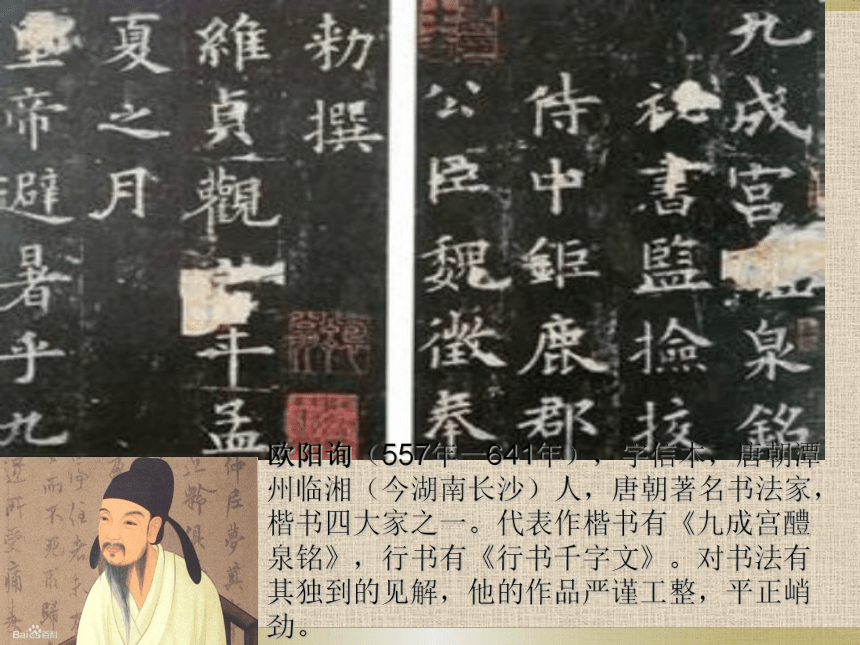 九成宫
泉銘
祕書監撿挍
侍中鉅鹿郡
公臣魏徵奉
勑撰
維貞觀
年孟
夏之月
皇帝避暑乎九
欧阳询（557年—641年），字信本，唐朝潭
州临湘（今湖南长沙）人，唐朝著名书法家，
楷书四大家之一。代表作楷书有《九成宫醴
泉铭》，行书有《行书千字文》。对书法有
其独到的见解，他的作品严谨工整，平正峭
劲。
仲尼夢奠
而不死形歸
迩所愛痛
Bai百科